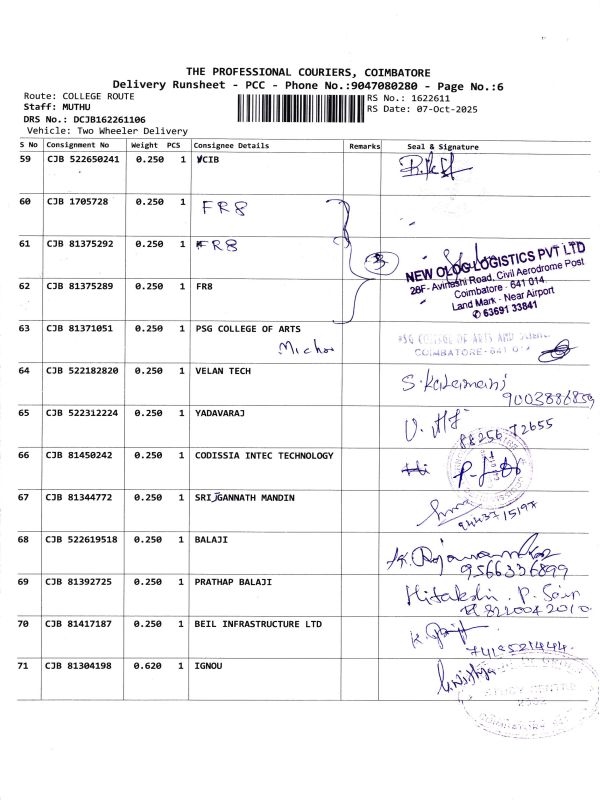 THE PROFESSIONAL COURIERS, COIMBATORE
Delivery Runsheet - PCC - Phone No.:9047080280 - Page No.:6
Route: COLLEGE ROUTE
Staff: MUTHU
DRS No.: DCJB162261106
Vehicle: Two Wheeler Delivery
RS No.: 1622611
RS Date: 07-Oct-2025
S No Consignment No Weight PCS Consignee Details Remarks Seal & Signature
59 CJB 522650241 0.250 1 VCIB
60 CJB 1705728 0.250 1 FR8
61 CJB 81375292 0.250 1 FR8
3
62 CJB 81375289 0.250 1 FR8
NEW OLOG LOGISTICS PVT LTD
28F- Avinashi Road, Civil Aerodrome Post
Coimbatore - 641 014.
Land Mark - Near Airport
✆ 63691 33841
63 CJB 81371051 0.250 1 PSG COLLEGE OF ARTS
PSG COLLEGE OF ARTS AND SCIENCE
COIMBATORE - 641 014
64 CJB 522182820 0.250 1 VELAN TECH
9003886859
65 CJB 522312224 0.250 1 YADAVARAJ
88256 72655
66 CJB 81450242 0.250 1 CODISSIA INTEC TECHNOLOGY
67 CJB 81344772 0.250 1 SRI JGANNATH MANDIN
9443715197
68 CJB 522619518 0.250 1 BALAJI
9566336899
69 CJB 81392725 0.250 1 PRATHAP BALAJI
8220042010
70 CJB 81417187 0.250 1 BEIL INFRASTRUCTURE LTD
71 CJB 81304198 0.620 1 IGNOU